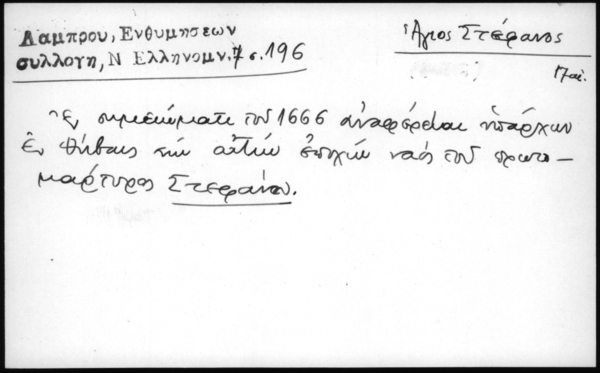 Λαμπρου, Ενθυμησεων
συλλογη, Ν Ελληνομν. 7 σ. 196
Ἅγιος Στέφανος
Ἐν σημειώματι τοῦ 1666 ἀναφέρεται ὑπάρχων
ἐν Θήβαις τὴν αὐτὴν ἐποχὴν ναὸς τοῦ πρωτο-
μάρτυρος Στεφάνου.